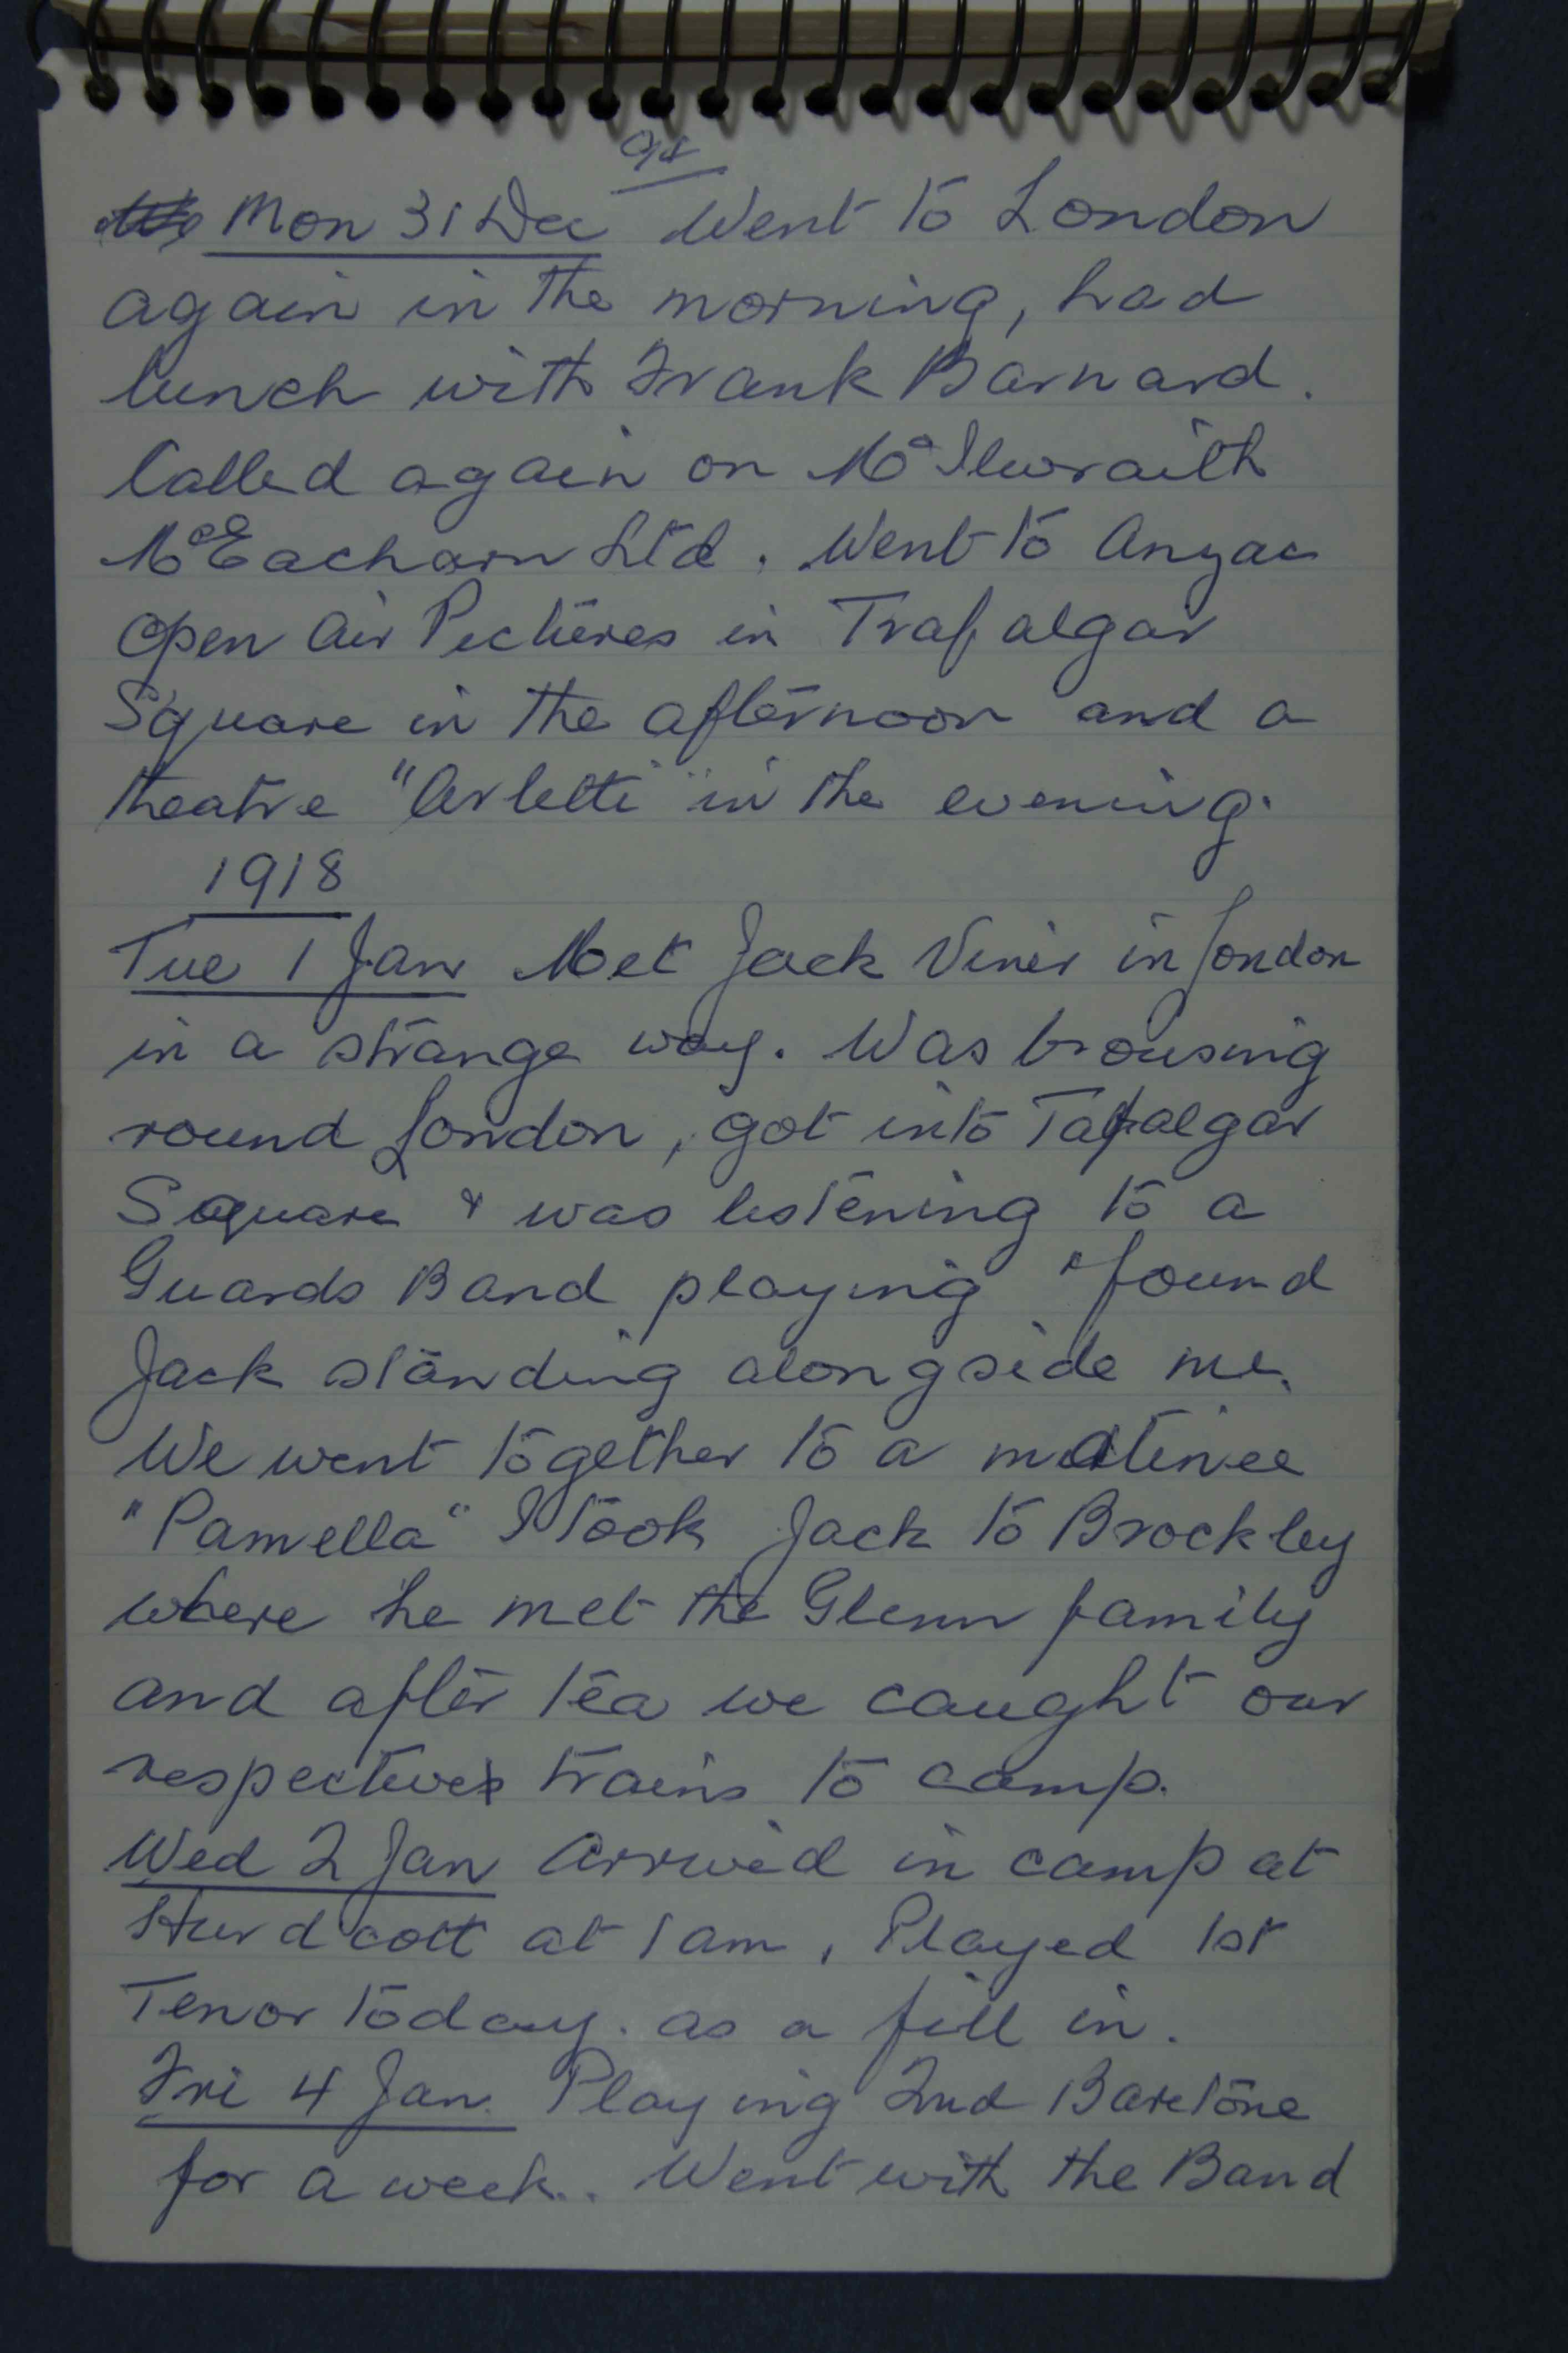 98
Mon 31 Dec Went to London
again in the morning, had
lunch with Frank Barnard.
Called again on McIlwraith
McEacharn Ltd. Went to Anzac
Open Air Pictures in Trafalgar
Square in the afternoon and a
theatre "Arlette" in the evening.
1918
Tue 1 Jan Met Jack Viner in London
in a strange way. Was brousing
round London, got into Tafalgar
Square & was listening to a
Guards Band playing & found
Jack standing alongside me.
We went together to a matinee
"Pamella" I took Jack to Brockley
where he met the Glenn family
and after tea we caught our
respective trains to camp.
Wed 2 Jan Arrived in camp at
Hurdcott at 1 am, Played 1st
Tenor today. as a fill in.
Fri 4 Jan. Playing 2nd Baretone
for a week. Went with the Band